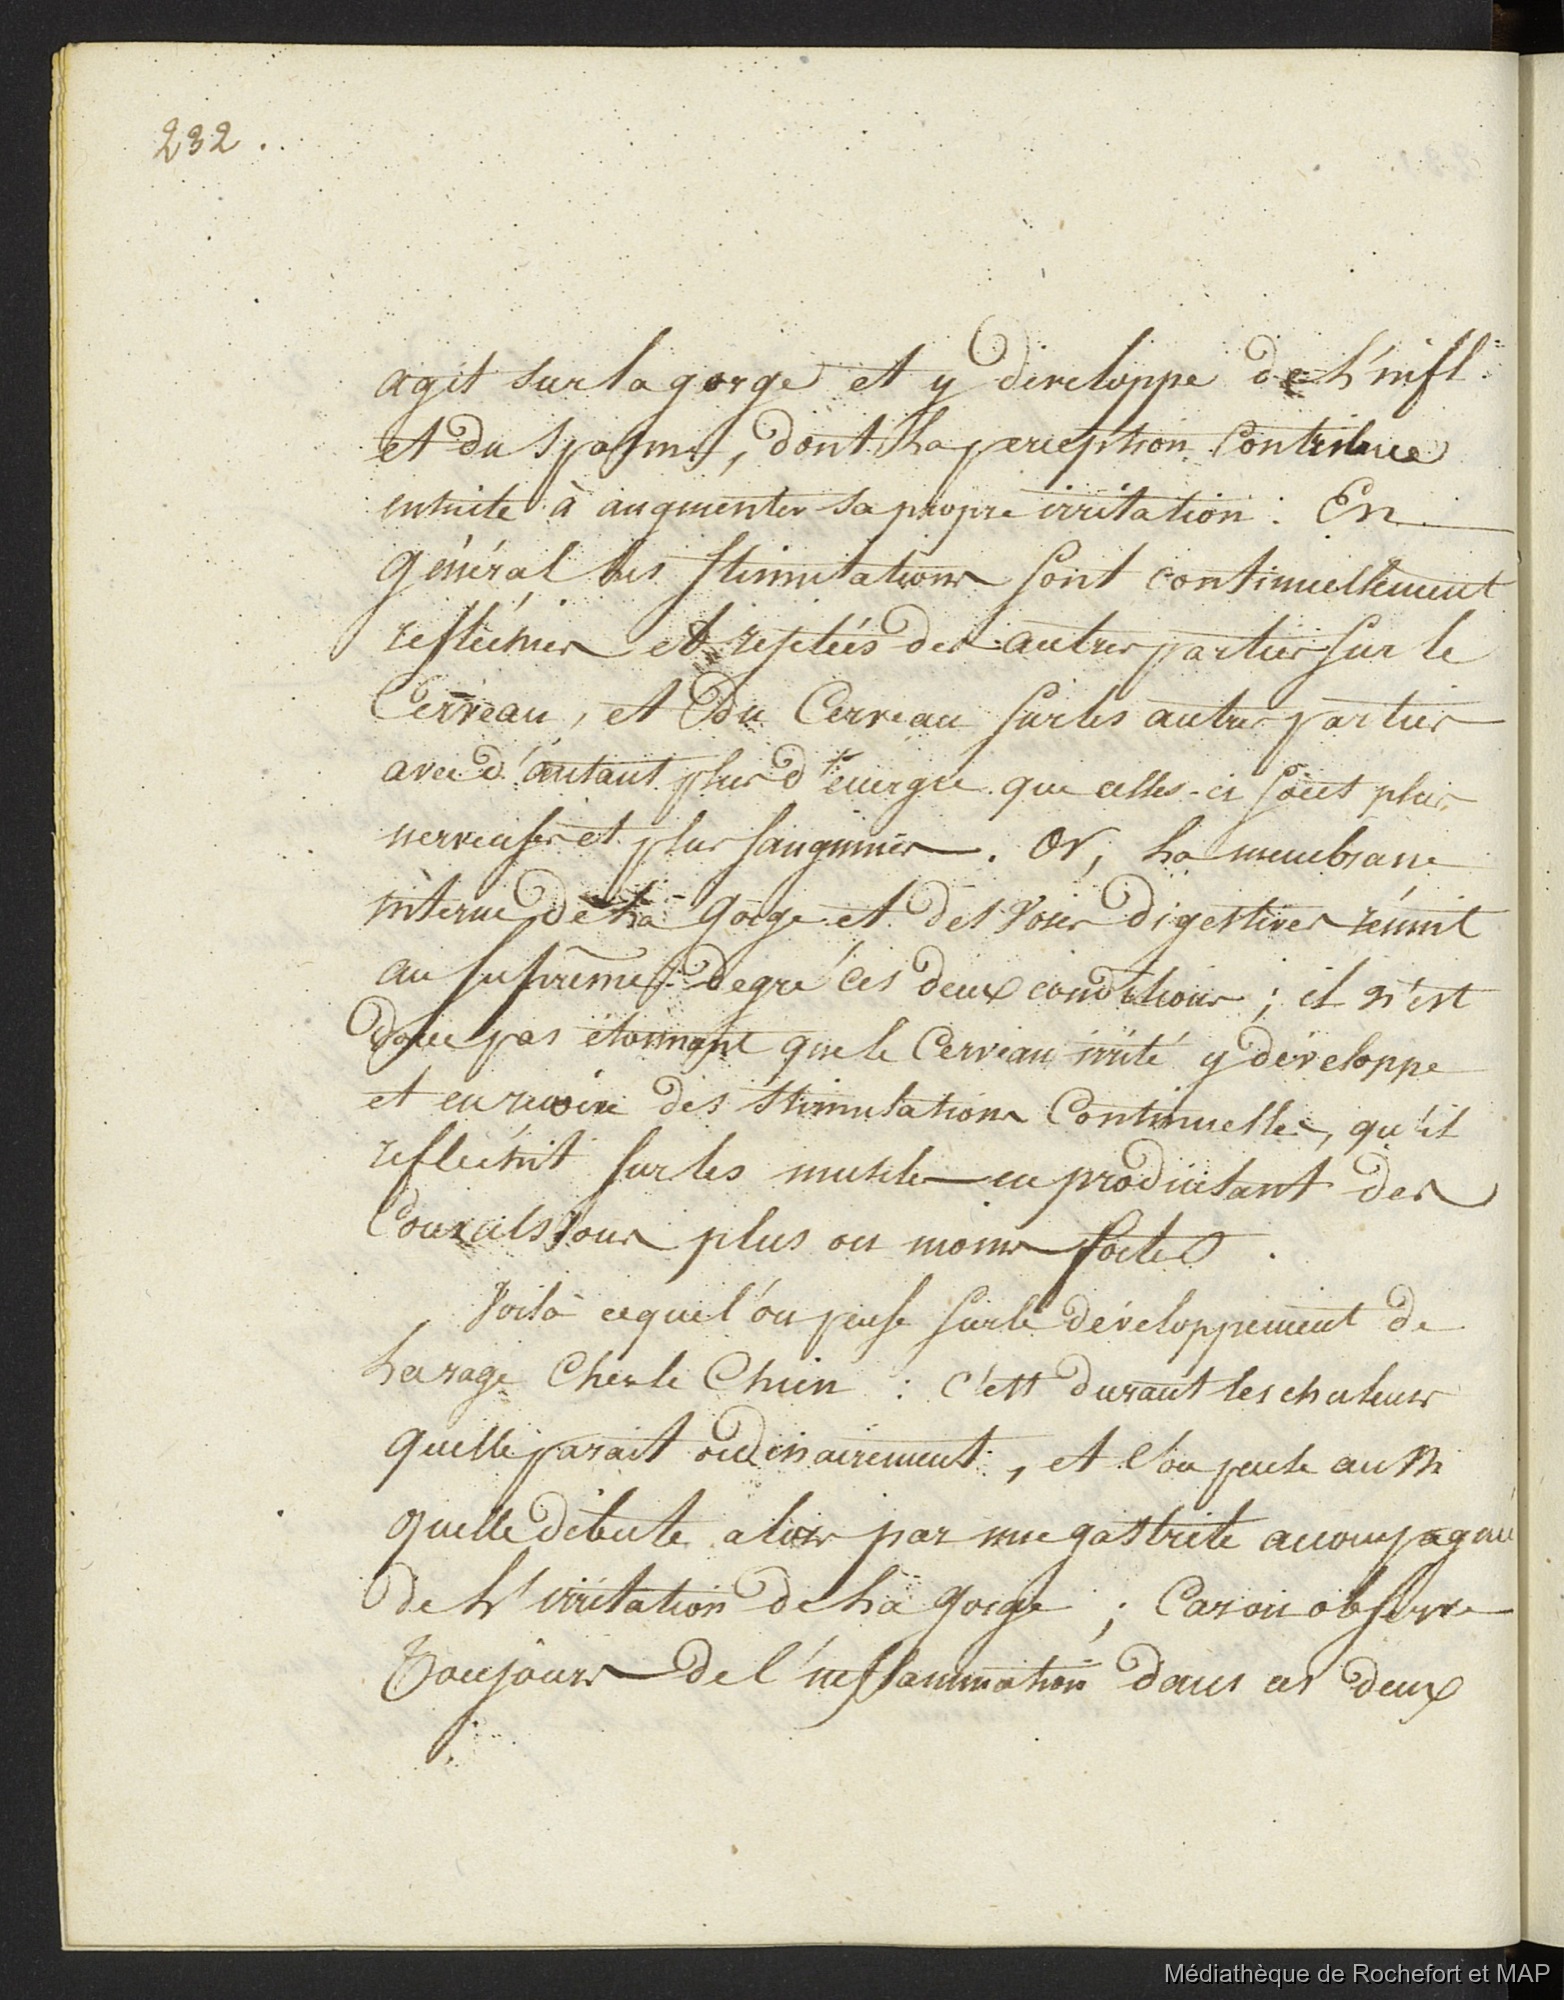 232.
agit sur la gorge et y développe de l'infl.
et du spasme, dont la perception contribue
ensuite à augmenter sa propre irritation. En
général les stimulations sont continuellement
reflèchies et rejetées des autres parties sur le
Cerveau, et du Cerveau sur les autres parties
avec d'autant plus d'énergie que celles-ci sont plus
nerveuses et plus sanguines. Or, la membrane
interne de la gorge et des voies digestives réunit
au suprême degré ces deux conditions ; il n'est
donc pas étonnant que le Cerveau irrité y développe
et en reçoive des stimulations Continuelles, qu'il
refléchit sur les muscles en produisant des
Convulsions plus ou moins fortes.
Voilà ce que l'on pense sur le développement de
la rage Chez le Chien : c'est durant les chaleurs
quelle parait ordinairement, et l'on pense aussi
quelle débute alors par une gastrite accompagnée
de l'irritation de la gorge ; Car on observe
Toujours de l'inflammation dans ces deux
Médiathèque de Rochefort et MAP